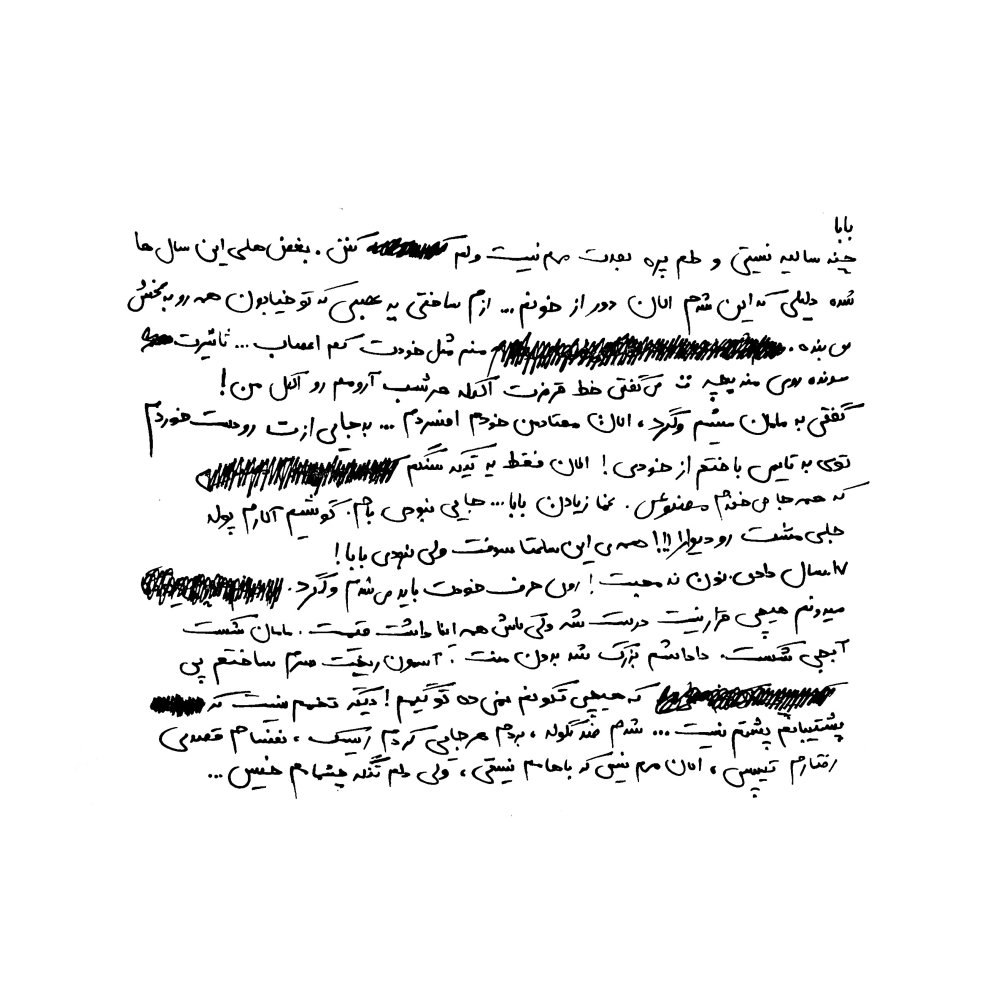 بابا
چند سالیه نیستی و دلم پره بعدت مهم نیست ولم کنن. بغض های این سال ها
شده دلیلی که این شدم الان دور از خونم... ازم ساختی یه عصبی که تو خیابون همه رو به فحش
می بنده. منم مثل خودت کم اعصاب... تاثیرت
مونده روی منه بچه می گفتی خط قرمزت اگه هرشب آرومم رو الکل من!
گفتی به مامان میشم ولگرد، الان معتادمن خودم افسردم... به جایی ازت رودست خوردم
توی یه تایمی باختم از خودمی! الان فقط یه تیکه سنگم
که همه جا می خندم مصنوعی. غما زیادن بابا... جایی نبودی باهام. گوشیم آلارم پوله
جای مشت رو دیوارا!!! همه ی این سالها سوخت ولی نبودی بابا!
۱۷سال دادی نون نه محبت! اون حرف خودت باید می شدم ولگرد.
میدونم هیچی قرار نیست درست شه ولی باش همه اینا داشت قیمت. مامان شکست
آبجی شکست. داداشم بزرگ شد بدون منت. آسون ریخت
که هیچی نگونم نمی ده تو گیم! دیگه نیست که
پشتیبانم پشتم نیست... شدم ضد گلوله، بردم هرجایی کردم ریسک، نفسام قصدی
رفتارم تیپیس، الان مهم نیس که باهام نیستی، ولی دلم تنگه چشمام خیس...